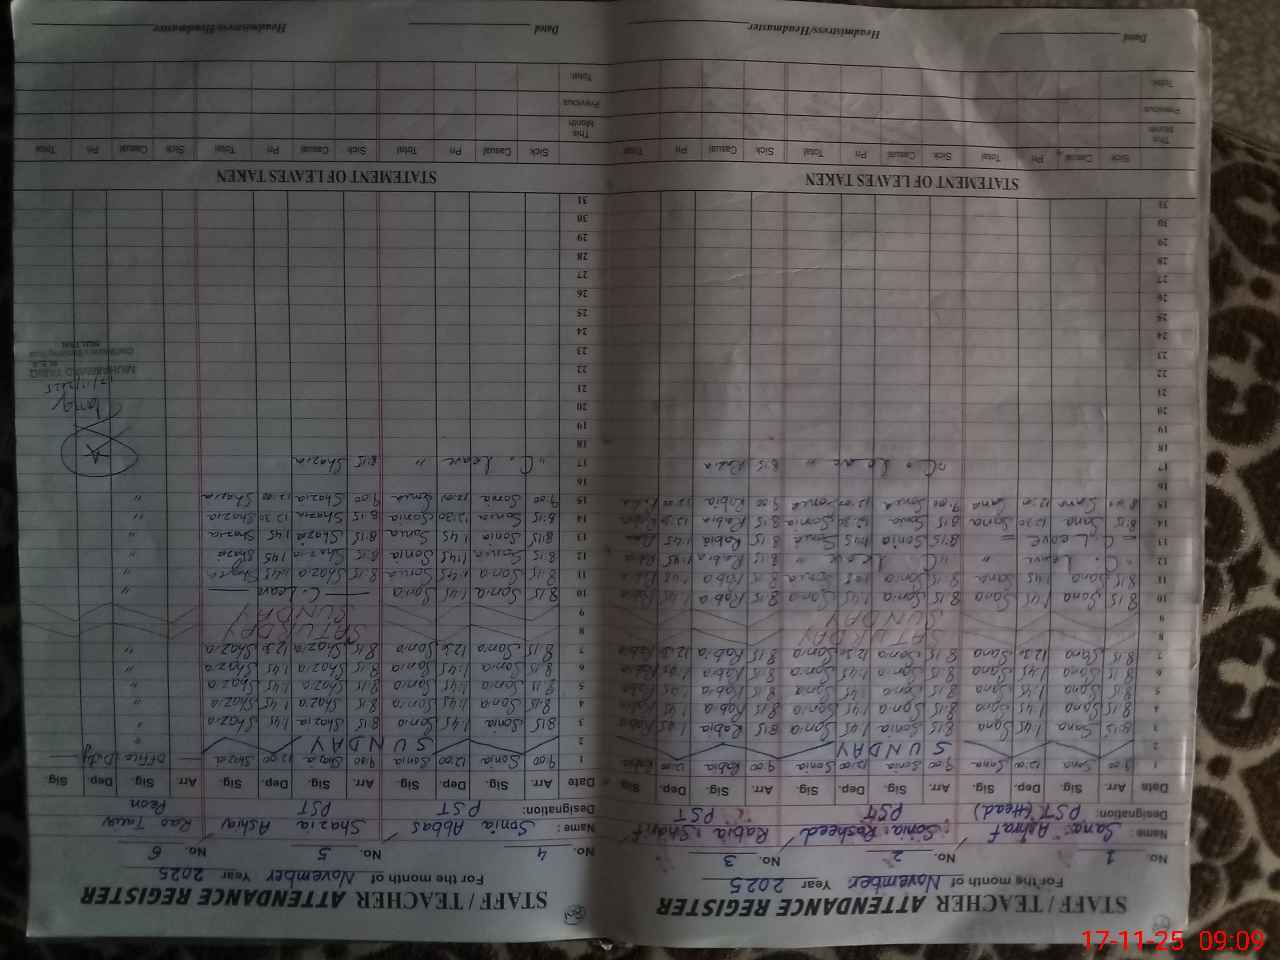 STAFF / TEACHER ATTENDANCE REGISTER
For the month of November Year 2025
No. 1 No. 2 No. 3
Name : Sana Ashraf Sonia Rasheed Rabia Sharif
Designation: PST (Head) PST PST
Date Arr. Sig. Dep. Sig. Arr. Sig. Dep. Sig. Arr. Sig. Dep. Sig.
1 9:00 Sana 12:00 Sana 9:00 Sonia 12:00 Sonia 9:00 Rabia 12:00 Rabia
2 SUNDAY
3 8:15 Sana 1:45 Sana 8:15 Sonia 1:45 Sonia 8:15 Rabia 1:45 Rabia
4 8:15 Sana 1:45 Sana 8:15 Sonia 1:45 Sonia 8:15 Rabia 1:45 Rabia
5 8:15 Sana 1:45 Sana 8:15 Sonia 1:45 Sonia 8:15 Rabia 1:45 Rabia
6 8:15 Sana 1:45 Sana 8:15 Sonia 1:45 Sonia 8:15 Rabia 1:45 Rabia
7 8:15 Sana 12:30 Sana 8:15 Sonia 12:30 Sonia 8:15 Rabia 12:30 Rabia
8 SATURDAY
9 SUNDAY
10 8:15 Sana 1:45 Sana 8:15 Sonia 1:45 Sonia 8:15 Rabia 1:45 Rabia
11 8:15 Sana 1:45 Sana 8:15 Sonia 1:45 Sonia 8:15 Rabia 1:45 Rabia
12 " C. Leave " " C. Leave " 8:15 Rabia 1:45 Rabia
13 = C Leave = 8:15 Sonia 1:45 Sonia 8:15 Rabia 1:45
14 8:15 Sana 12:30 Sana 8:15 Sonia 12:30 Sonia 8:15 Rabia 12:30 Rabia
15 9:00 Sana 12:00 Sana 9:00 Sonia 12:00 Sonia 9:00 Rabia 12:00 Rabia
16
17 " C. Leave " 8:15
18
19
20
21
22
23
24
25
26
27
28
29
30
31
STATEMENT OF LEAVES TAKEN
Sick Casual Pri Total Sick Casual Pri Total Sick Casual Pri Total
This Month
Previous
Total:
Dated Headmistress/Headmaster
STAFF / TEACHER ATTENDANCE REGISTER
For the month of November Year 2025
No. 4 No. 5 No. 6
Name : Sonia Abbas Shazia Ashraf Rao
Designation: PST PST Peon
Date Arr. Sig. Dep. Sig. Arr. Sig. Dep. Sig. Arr. Sig. Dep. Sig.
1 9:00 Sonia 12:00 Sonia 9:00 Shazia 12:00 Shazia Office Duty
2 SUNDAY "
3 8:15 Sonia 1:45 Sonia 8:15 Shazia 1:45 Shazia "
4 8:15 Sonia 1:45 Sonia 8:15 Shazia 1:45 Shazia "
5 8:15 Sonia 1:45 Sonia 8:15 Shazia 1:45 Shazia "
6 8:15 Sonia 1:45 Sonia 8:15 Shazia 1:45 Shazia "
7 8:15 Sonia 12:30 Sonia 8:15 Shazia 12:30 Shazia "
8 SATURDAY
9 SUNDAY
10 8:15 Sonia 1:45 Sonia C. Leave "
11 8:15 Sonia 1:45 Sonia 8:15 Shazia 1:45 Shazia "
12 8:15 Sonia 1:45 Sonia 8:15 Shazia 1:45 Shazia "
13 8:15 Sonia 1:45 Sonia 8:15 Shazia 1:45 Shazia "
14 8:15 Sonia 12:30 Sonia 8:15 Shazia 12:30 Shazia "
15 9:00 Sonia 12:00 Sonia 9:00 Shazia 12:00 Shazia "
16
17 " C. Leave " 8:15 Shazia A
18
19
20
21
22
23
24
25
26
27
28
29
30
31
17/11/2025
MUHAMMAD TARIQ
STATEMENT OF LEAVES TAKEN
Sick Casual Pri Total Sick Casual Pri Total Sick Casual Pri Total
This Month
Previous
Total:
Dated Headmistress/Headmaster
17-11-25 09:09